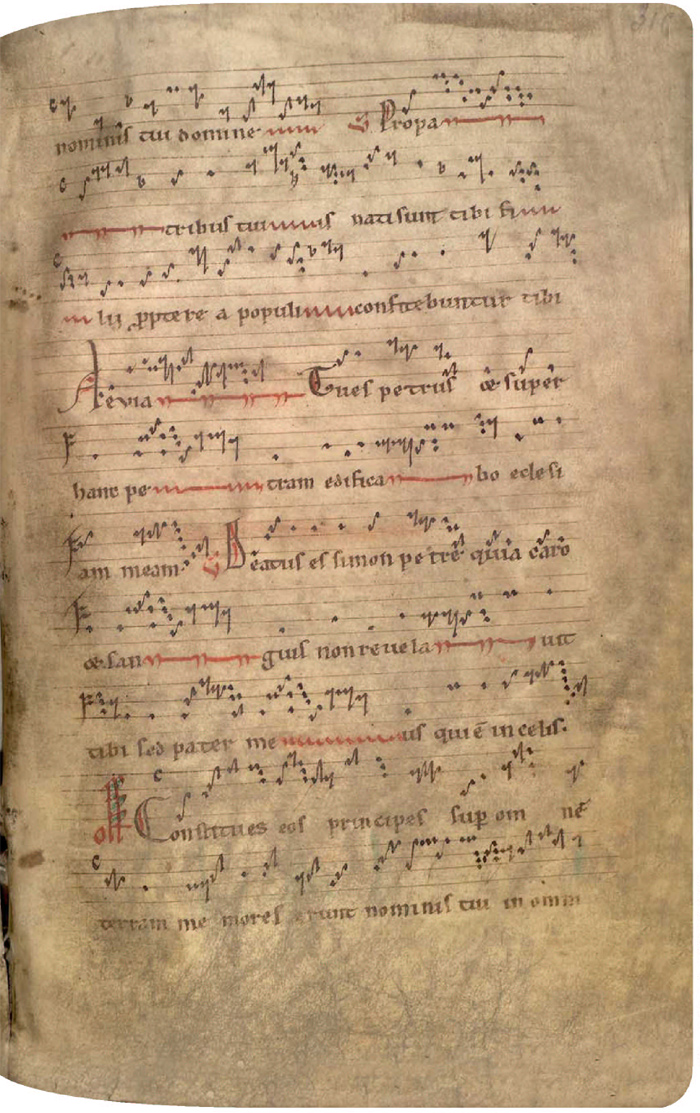 nominis tui domine V Propa
tribus tuis nati sunt tibi fi
lii ꝓptere a populi confitebuntur tibi
Aeuia Tu es petrus & super
hanc pe tram edifica bo eclesi
am meam V Beatus es simon pe tre quia caro
& san guis non reuela uit
tibi sed pater me us qui ē in celis.
off Constitues eos principes sup om nē
terram me mores erunt nominis tui in omni